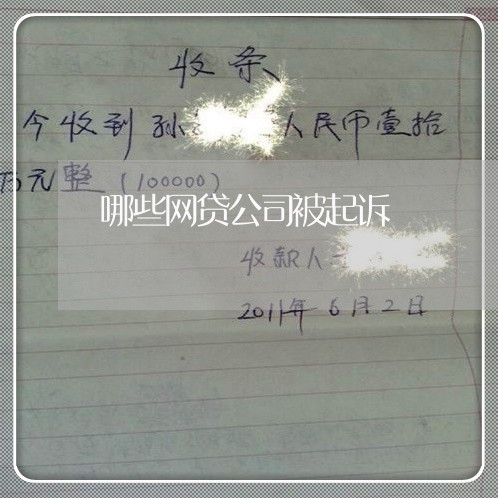 收条
今收到孙 人民币壹拾
万元整(100000)
哪些网贷公司被起诉
收款人
2011年6月2日